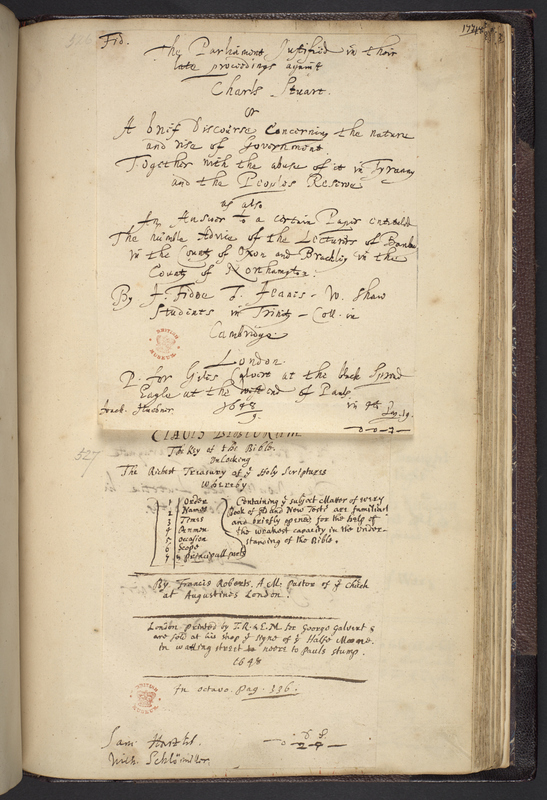 526
Fid.
The Parliament Justified in their
late proceedings against
Charls Stuart.
or
A brief Discourse Concerning the nature
and rise of Government
Together with the abuse of it in Tyranny
and the Peoples Reserve
as also
An Answer to a certain Paper entituled
The humble Advice of the Lecturers of Banbury
in the County of Oxon and Brackley in the
County of Northampton:
By J. Fidoe T. Jeanes - W. Shaw
Students in Trinity - Coll. in
Cambridge.
BRITISH
MUSEUM
London
P. for Giles Calvert at the black Spred
Eagle at the west end of Pauls
1648
9.
in 4to
Pag. 19.
0-0-7
CLAVIS BIBLIORUM
527
The Key of the Bible.
Unlocking
The Richest Treasury of ye Holy Scriptures
Whereby
1 Order
2 Names
3 Times
4 Penmen
5 Occasion
6 Scope
7 & principall parts
Containing ye subject Matter of every
Book of Old and New Testt are familiarly
and briefly opened for the help of
the weakest capacity in the Under-
standing of the Bible.
By Francis Roberts, A.M. Pastor of ye Church
at Augustines London.
London printed by T.R. & E.M. for George Calvert &
are sold at his shop ye signe of ye Halfe Moone.
in watling street neere to Pauls stump.
1648
BRITISH
MUSEUM
in octavo. pag. 396.
Sam Hartlib.